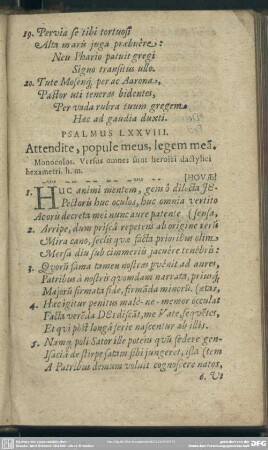 19. Pervia se tibi tortuosi
Alta maris juga præbuêre:
Neu Phario patuit gregi
Signo transitus ullo.
20. Tute Mosenq́; per ac Aarona,
Pastor uti teneras bidentes,
Per vada rubra tuum gregem
Hac ad gaudia duxti.
PSALMUS LXXVIII.
Attendite, popule meus, legem meā.
Monocolos. Versus omnes sunt heroici dactylici
hexametri. h. m.
[HOVÆ
1. HUc animi mentem, gens ô dilecta JE-
Pectoris huc oculos, huc omnia vertito
Acoris decreta mei nunc aure patente (sensa,
2. Arripe, dum priscâ repetens ab origine rerū
Mira cano, seclis quæ facta prioribus olim
Mersa diu sub cimmeriis jacuêre tenebris:
3. Quorū fama tamen nostras pvênit ad aures,
Patribus à nostris quondam narrata, priusq́;
Majorū firmata fide, firmāda minorū. (ævū,
4. Hæc igitur penitus male-ne-memor occulat
Facta verēda DEI discāt, me Vate, sequētes,
Et qui pōst longâ serie nascentur ab illis.
5. Namq́; poli Sator ille poteīs quū fœdere gen-
Isaciā de stirpe satam sibi jungeret, ista (tem
A Patribus demum voluit cognoscere natos,
6. Vt